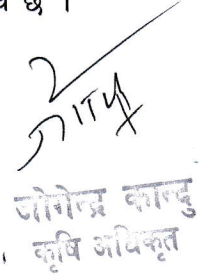 छ ।
जोगेन्द्र कान्दु
कृषि अधिकृत